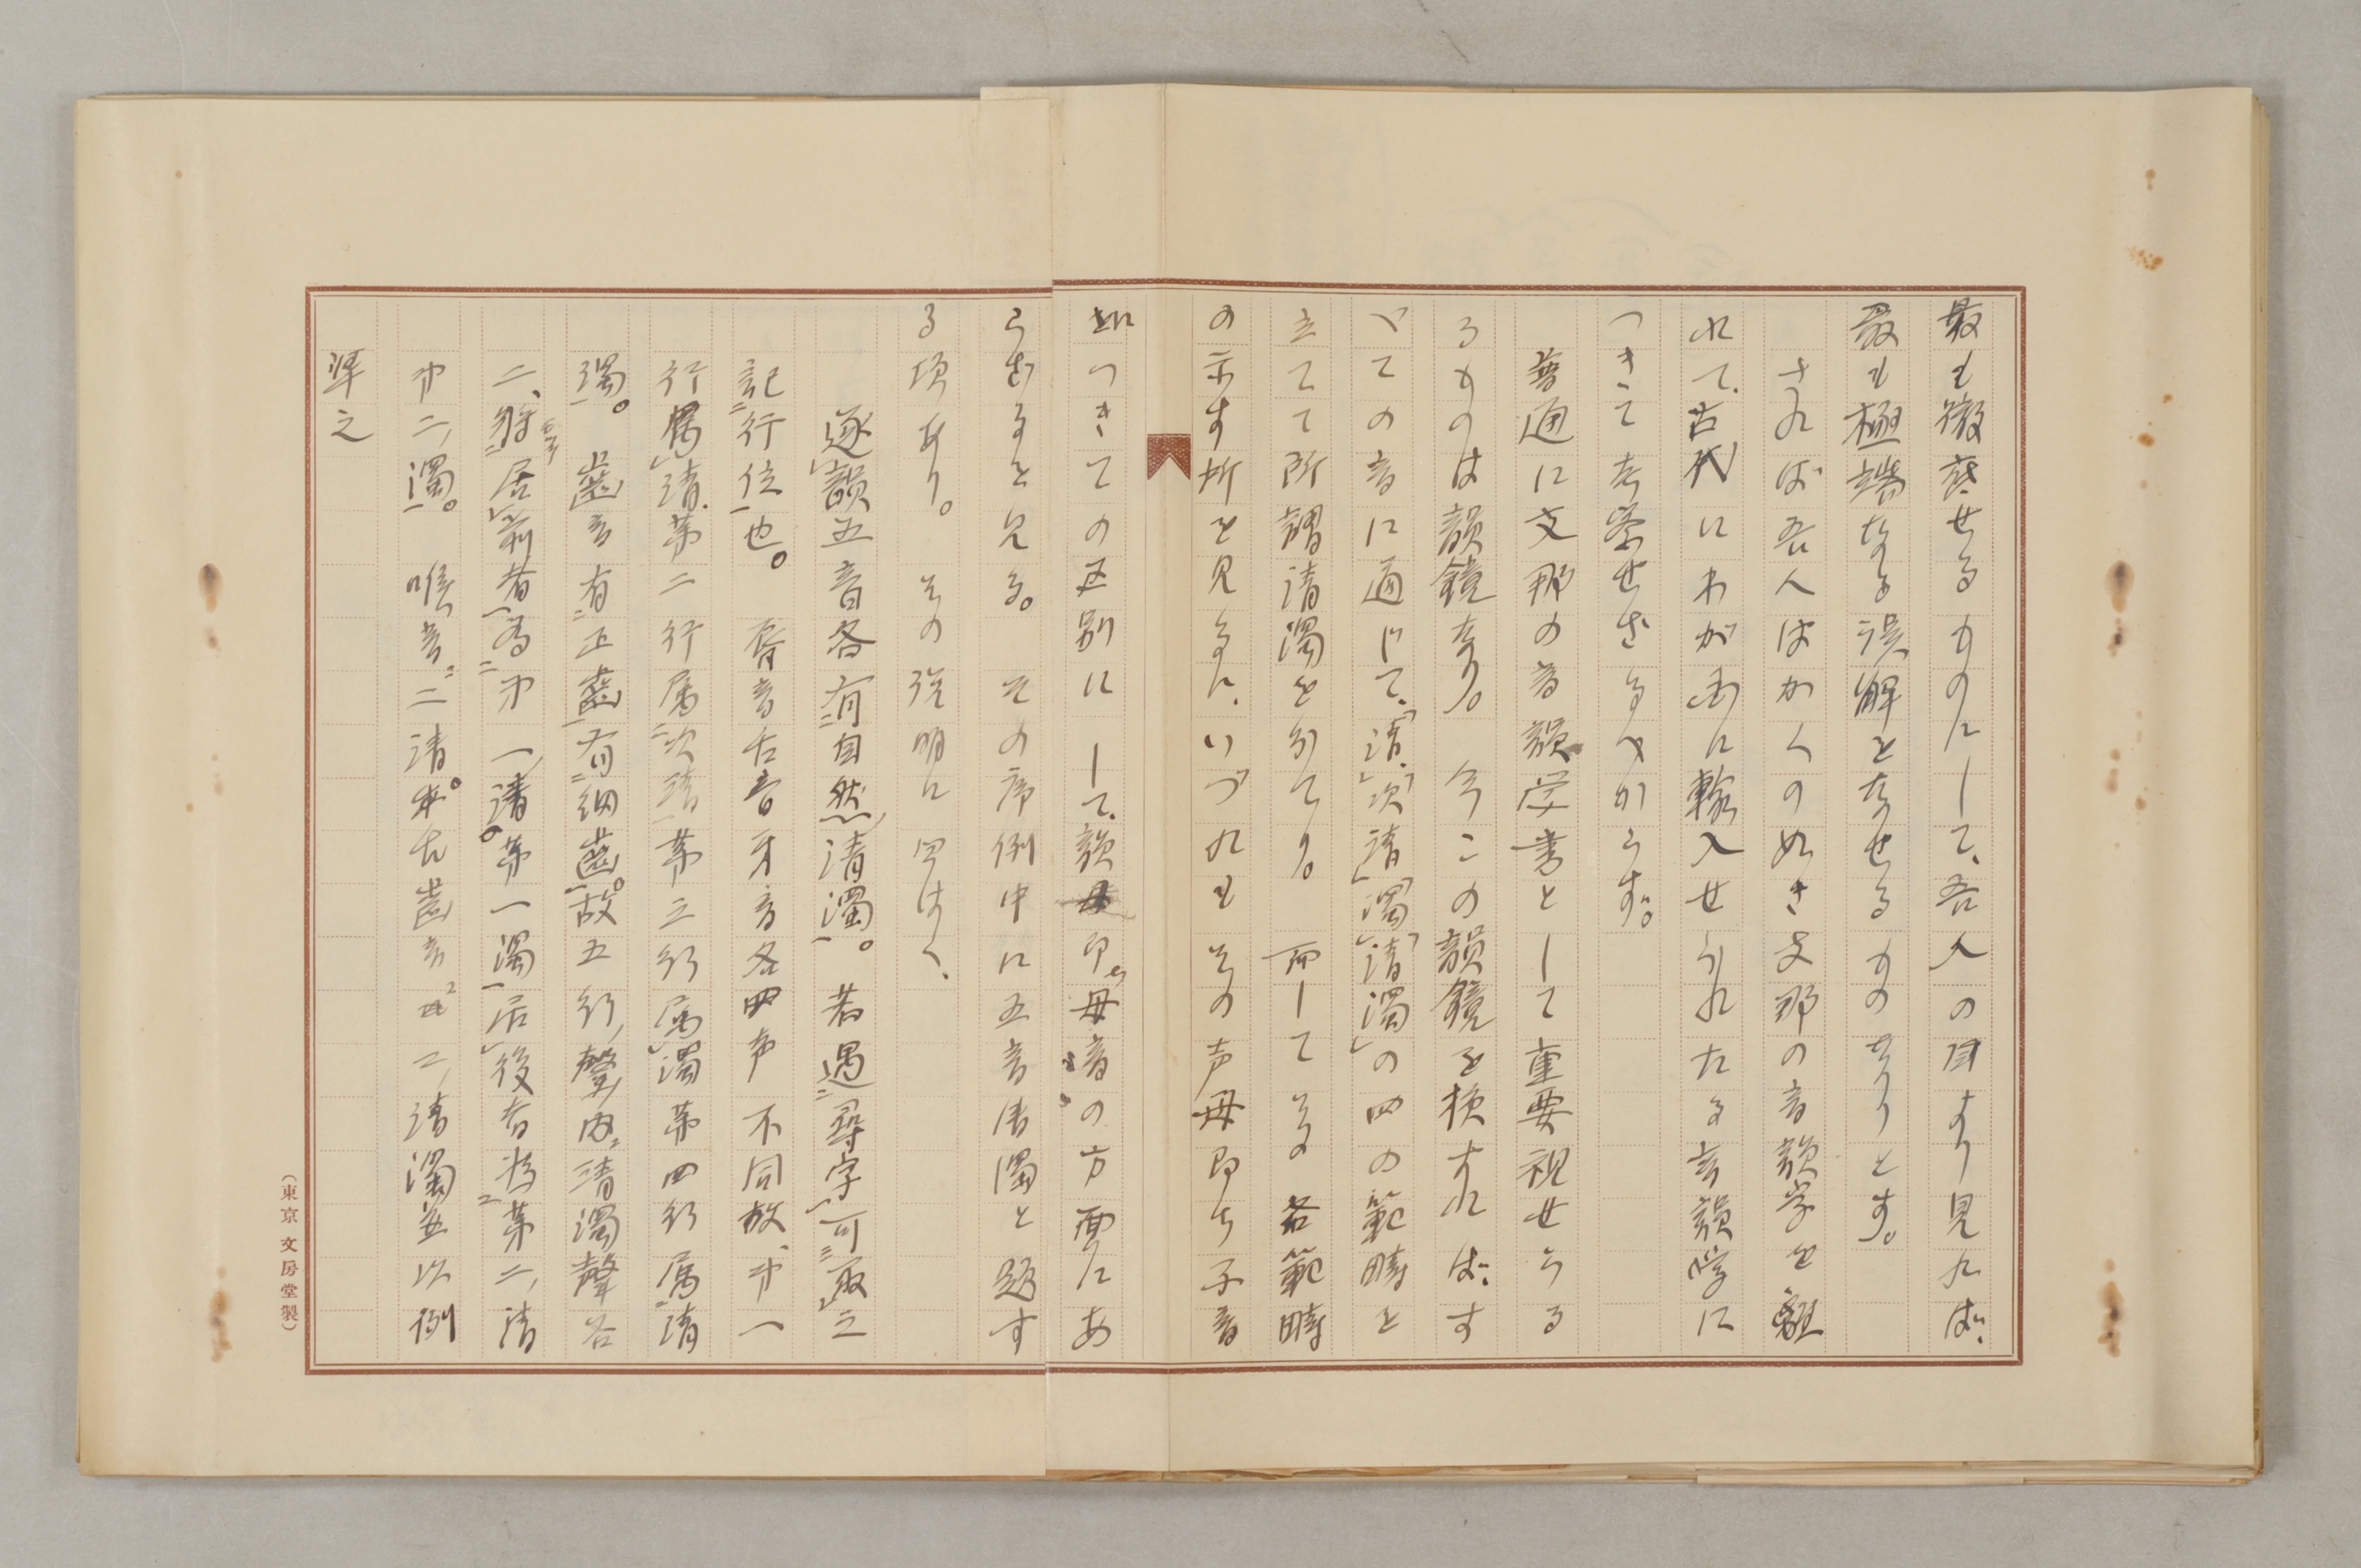 最も徹底せるものにして、吾人の目より見れば、
最も極端なる誤解となせるものなりとす。
されば吾人はかくの如き支那の音韻学を離
れて、古代にわが国に輸入せられたる音韻学に
つきて考察せざるべからず。
普通に支那の音韻学書として重要視せらる
るものは韻鏡なり。今この韻鏡を検すれば、す
べての音に通じて、「清」「次清」「濁」「清濁」の四の範疇を
立てて所謂清濁を分てり。而してその各範疇
の示す所を見るに、いづれもその声母即ち子音
につきての区別にして、韻即ち母音の方面にあ
らざるを見る。その序例中に五音清濁と題す
る項あり。その説明に曰はく、
逐韻五音各有自然清濁。若遇尋字可取之
記行位也。唇音舌音牙音各四声不同故、第一
行属清第二行属次清第三行属濁第四行属清
濁。歯音有正歯有細歯。故五行聲内清濁聲各
二、将居前者為第一清。第一濁居後者為第二、清
第二、濁。喉音二清。本舌歯音二、清濁並以例
準之
（東京文房堂製）